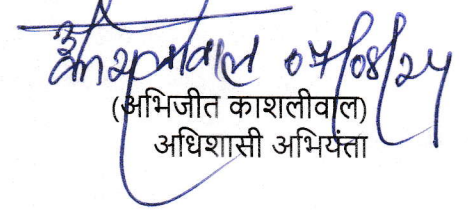 07/08/24
(अभिजीत काशलीवाल)
अधिशासी अभियंता